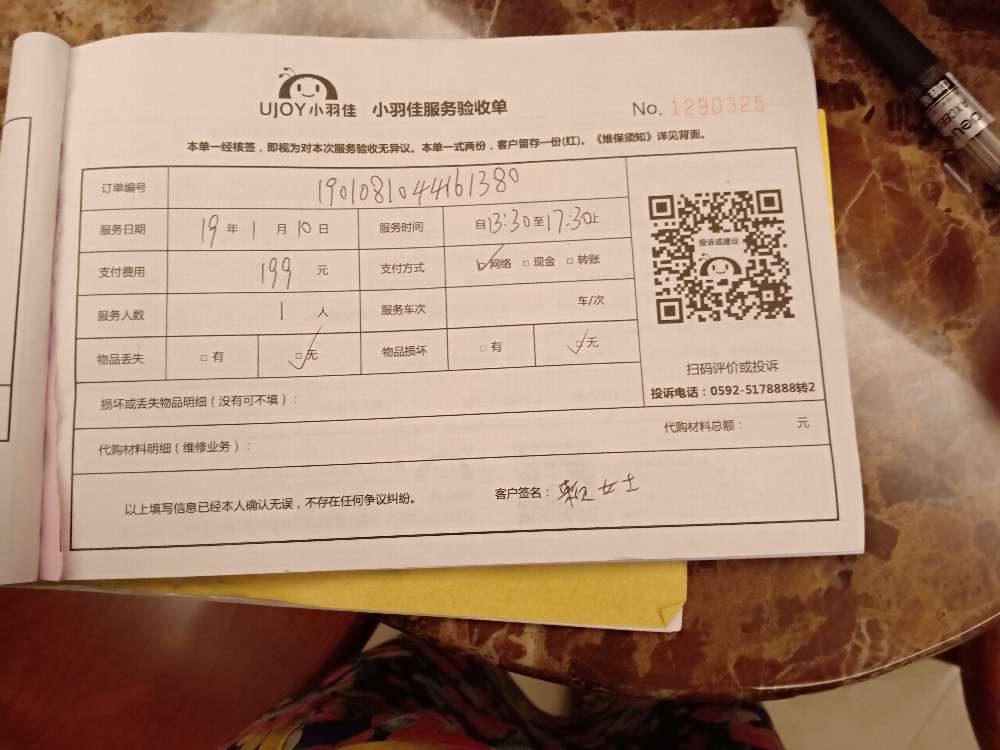 UJOY小羽佳 小羽佳服务验收单 No. 1290325
本单一经核签，即视为对本次服务验收无异议。本单一式两份，客户留存一份(红)。《维保须知》详见背面。
订单编号 1901081044161380
服务日期 19 年 1 月 10 日 服务时间 自13:30至17:30止
投诉或建议
支付费用 199 元 支付方式 ☑网络 □现金 □转账
服务人数 1 人 服务车次 车/次
物品丢失 □有 ☑无 物品损坏 □有 ☑无
扫码评价或投诉
投诉电话：0592-5178888转2
损坏或丢失物品明细（没有可不填）：
代购材料明细（维修业务）： 代购材料总额： 元
以上填写信息已经本人确认无误，不存在任何争议纠纷。 客户签名： 女士
deli